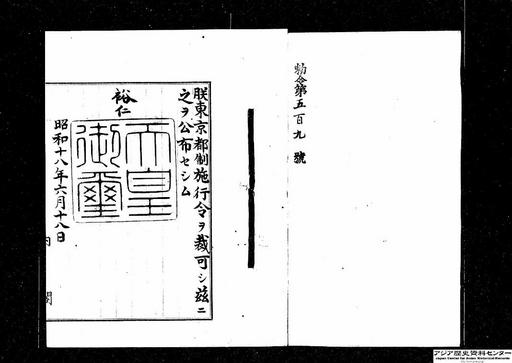 勅令第五百九號
朕東京都制施行令ヲ裁可シ茲ニ
之ヲ公布セシム
裕仁
天皇御璽
昭和十八年六月十八日
内閣
アジア歴史資料センター
Japan Center for Asian Historical Records